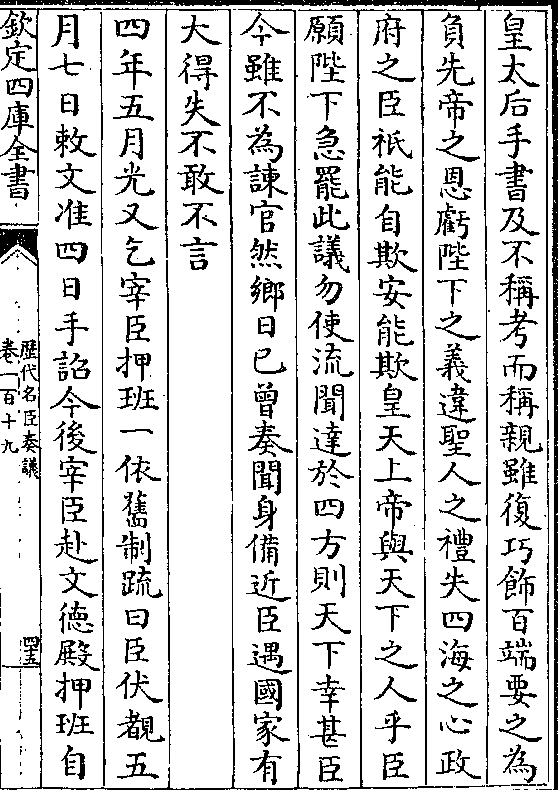 皇太后手書及不稱考而稱親雖復巧飾百端要之為
負先帝之恩虧陛下之義違聖人之禮失四海之心政
府之臣祇能自欺安能欺皇天上帝與天下之人乎臣
願陛下急罷此議勿使流聞達於四方則天下幸甚臣
今雖不為諫官然鄉日已曾奏聞身備近臣遇國家有
大得失不敢不言
四年五月光又乞宰臣押班一依舊制䟽曰臣伏覩五
月七日敕文准四日手詔今後宰臣赴文德殿押班自
欽定四庫全書
歷代名臣奏議
卷一百十九
四十五